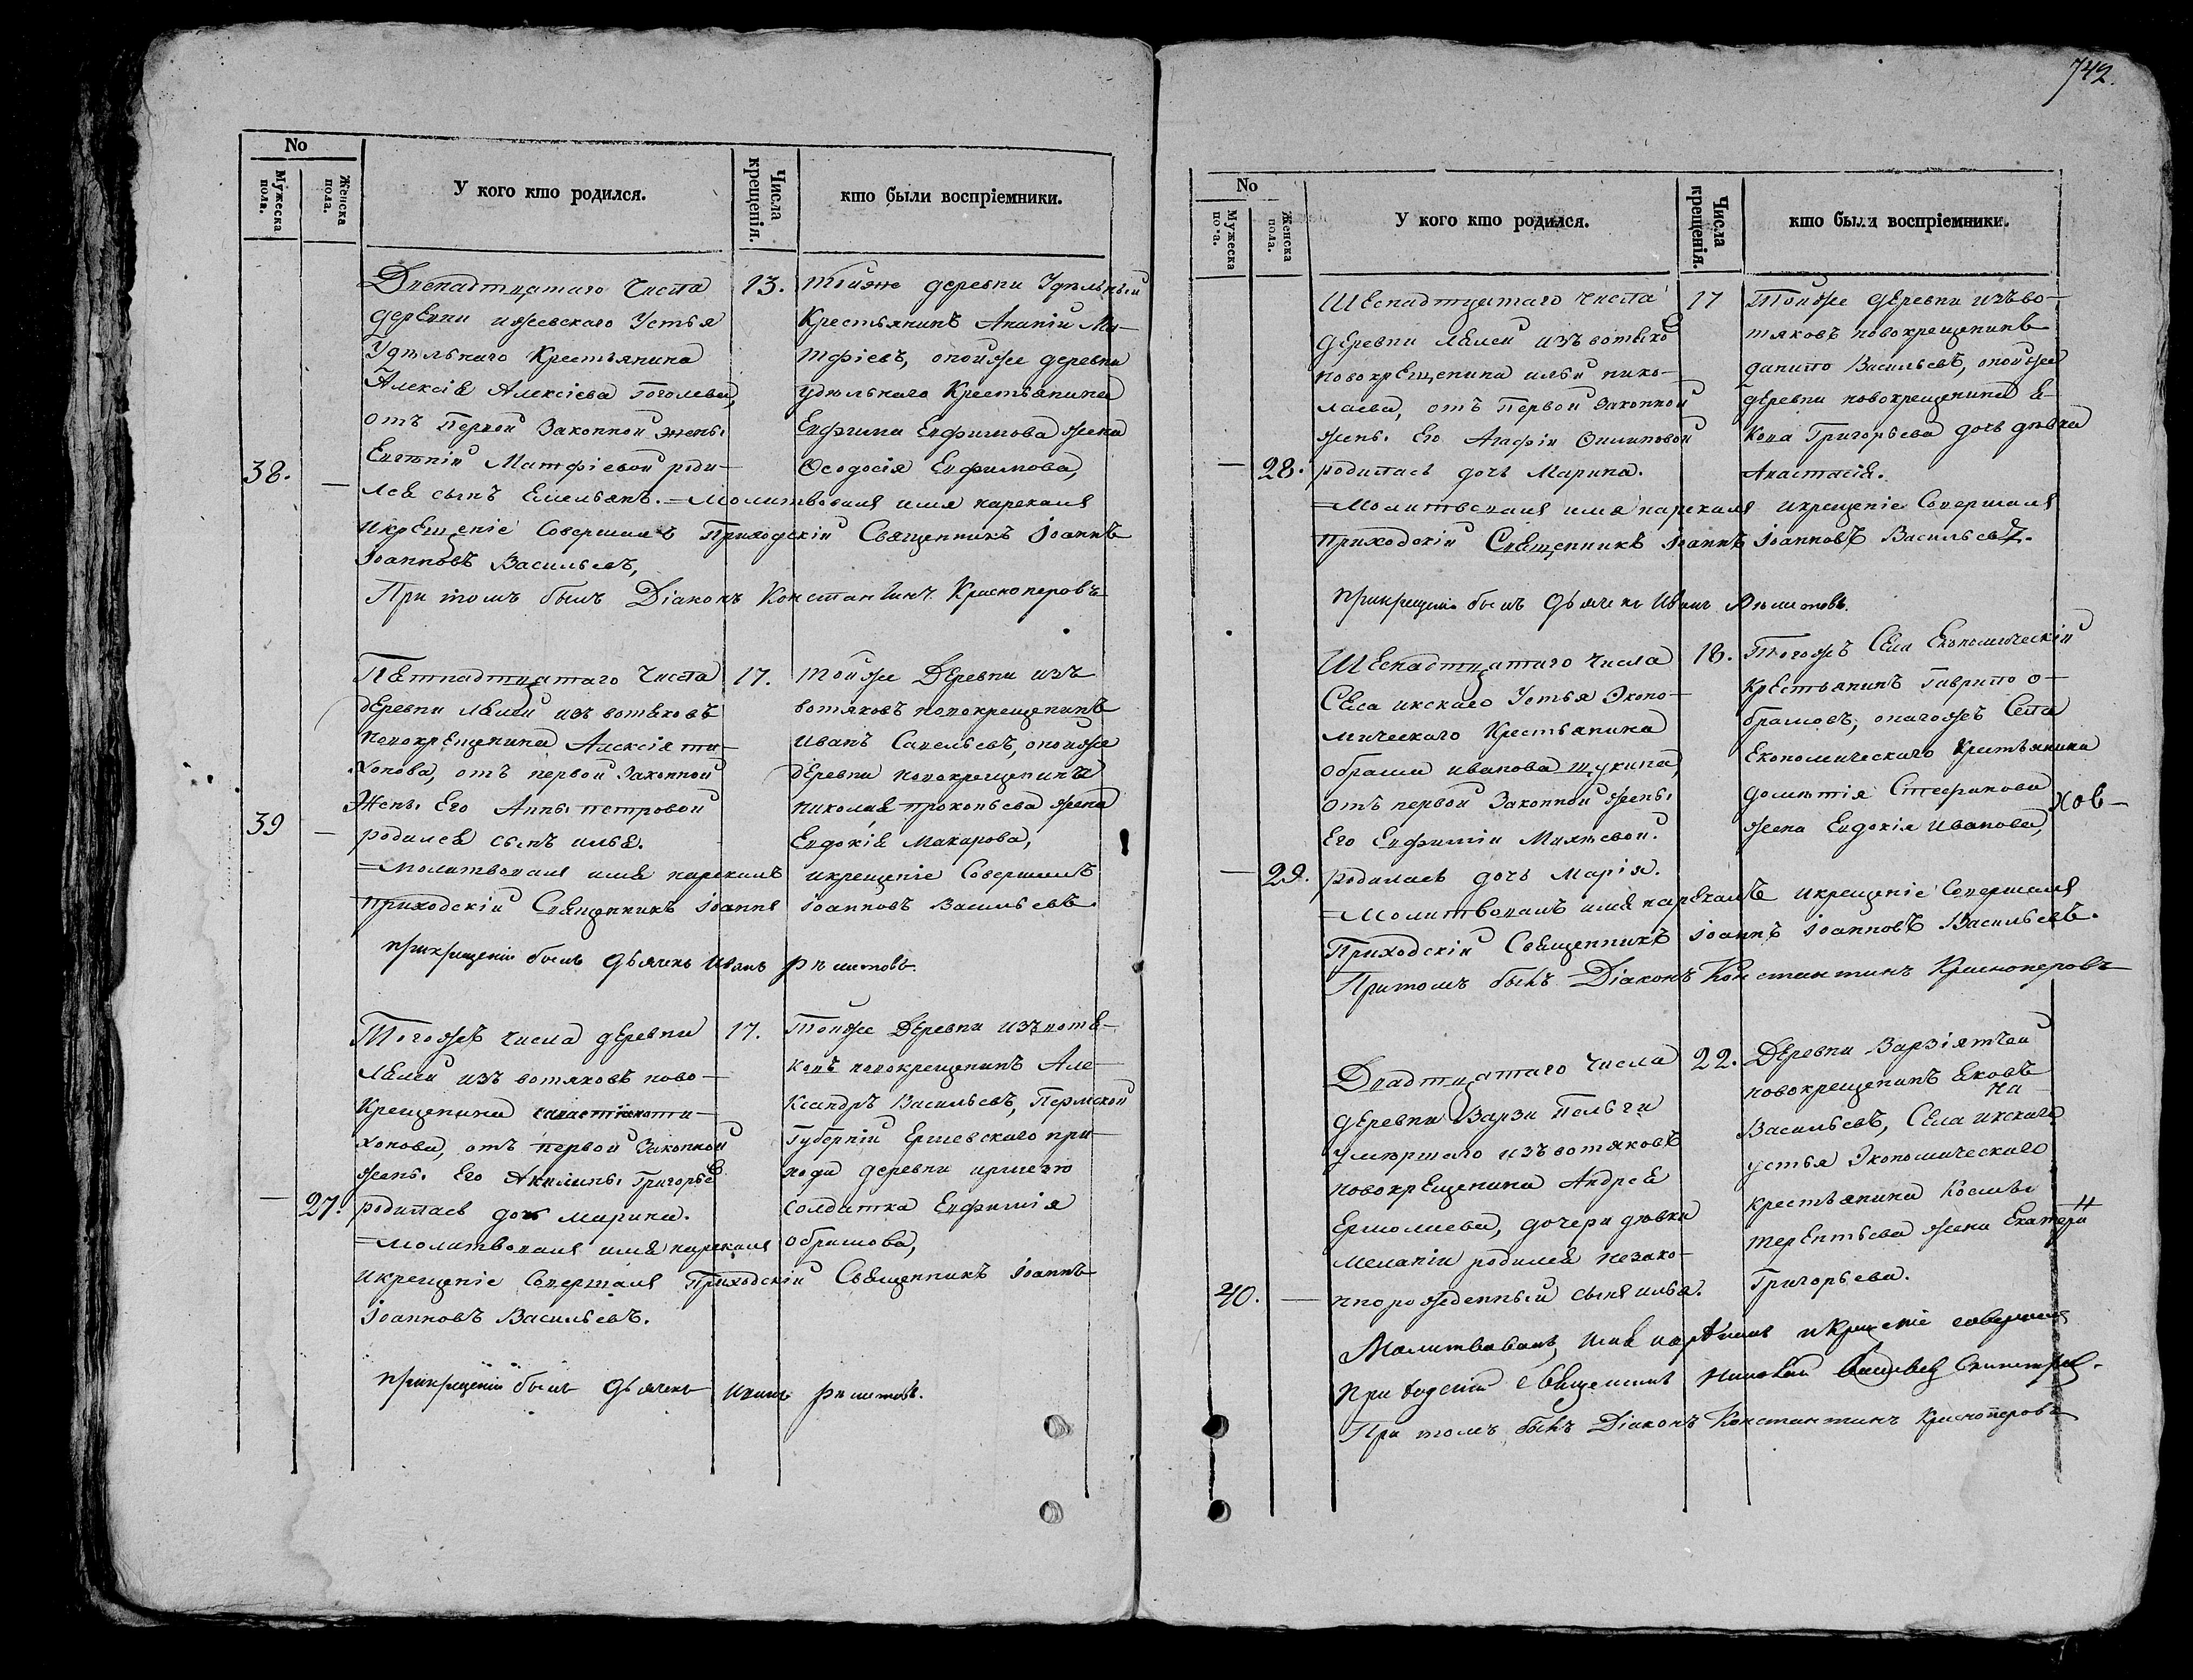 742.
No
Мужеска пола.
Женска пола.
У кого кто родился.
Числа крещенія.
кто были воспріемники.
Двенадтцатаго числа
деревни ижевскаго Устья
Удѣльнаго Крестьянина
Алексія Алексіева Гоголева,
отъ Первой Законной жены
Матфіевой роди-
38. —
лся сынъ Емельянъ. = Молитвовалъ имя нарекалъ
и крещеніе Совершалъ Приходскій Священникъ Іоаннъ
Іоанновъ Васильевъ,
При томъ былъ Діаконъ Константинъ Красноперовъ
13.
тойже деревни Удѣльный
Крестьянинъ Ананій Ма-
тфіевъ, онойже деревни
удѣльнаго Крестьянина
Евфима Евфимова жена
Ѳеодосія Евфимова,
Пятнадтцатаго числа
деревни изъ вотяковъ
новокрещенина Алексія ти-
хонова, отъ первой Законной
Жены Его Анны петровой
39 —
родился сынъ илья.
= молитвовалъ имя нарекалъ и крещеніе Совершалъ
приходскій Священникъ іоаннъ іоанновъ Васильевъ.
при крещеніи былъ дьячекъ Иванъ
17.
тойже Деревни изъ
вотяковъ новокрещенинъ
Иванъ Савельевъ, онойже
деревни новокрещенина
николая прокопьева жена
Евдокія Макарова,
Тогожъ числа деревни
изъ вотяковъ ново-
крещенина ти-
хонова, отъ первой Законной
жены Его Акилины Григорье
— 27.
родилась дочь марина.
= молитвовалъ имя нарекалъ
и крещеніе Совершалъ Приходскій Священникъ іоаннъ
іоанновъ Васильевъ.
при крещеніи былъ дьячекъ иванъ
17.
тойже Деревни изъ вотя-
ковъ новокрещенинъ Але-
ксандръ Васильевъ, Пермской
Губерніи Ершевскаго при-
хода деревни
Солдатка Евфимія
Обрамова,
No
Мужеска пола.
Женска пола.
У кого кто родился.
Числа крещенія.
кто были воспріемники.
Шеснадтцатаго числа
деревни изъ вотяко
новокрещенина ильи нико-
лаева, отъ первой Законной
жены Его Агафіи Филиповой
— 28.
родилась дочь Марина.
= Молитвовалъ имя нарекалъ и крещеніе Совершалъ
приходскій Священникъ іоаннъ іоанновъ Васильевъ.
при крещеніи былъ дьячекъ Иванъ
17
Тойже деревни изъ во-
тяковъ новокрещенинъ
данило Васильевъ, онойже
деревни новокрещенина Я-
кова Григорьева дочь дѣвка
Анастасія.
Шеснадтцатаго числа
Села икскаго Устья Эконо-
мическаго Крестьянина
обрама иванова щукина,
отъ первой Законной жены
Его Евфиміи
— 29.
родилась дочь Марія.
= Молитвовалъ имя нарекалъ и крещеніе Совершалъ
Приходскій Священникъ іоаннъ іоанновъ Васильевъ.
При томъ былъ Діаконъ Константинъ Красноперовъ
18.
Тогожъ Села Економическій
крестьянинъ Гаврило о-
брамовъ, онагожъ Села
Економическаго Крестьянина
Стефанова
жена Евдокія Иванова,
хов-
Двадтцатаго числа
деревни Варзи Пельги
умершаго изъ вотяковъ
новокрещенина Андрея
Ермолаева, дочери дѣвки
меланіи родился незако-
40. —
ннорожденный сынъ илья.
Молитвовалъ, имя нарекалъ и крещеніе совершалъ
приходскій священникъ Николай
При томъ былъ Діаконъ Константинъ Красноперовъ
22.
Деревни Варзіятчей
новокрещенинъ Яковъ
Васильевъ, Села икскаго
устья Экономическаго
крестьянина Космы
терентьева жена Екатери
на
Григорьева.